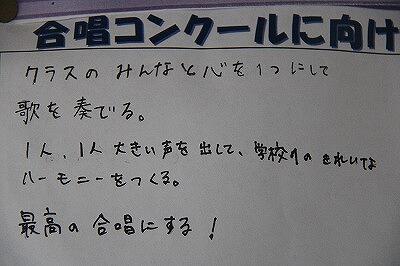 合唱コンクールに向け
クラスの みんなと心を1つにして
歌を奏でる。
1人、1人 大きい声を出して、学校1の きれいな
ハーモニーをつくる。
最高の合唱にする！